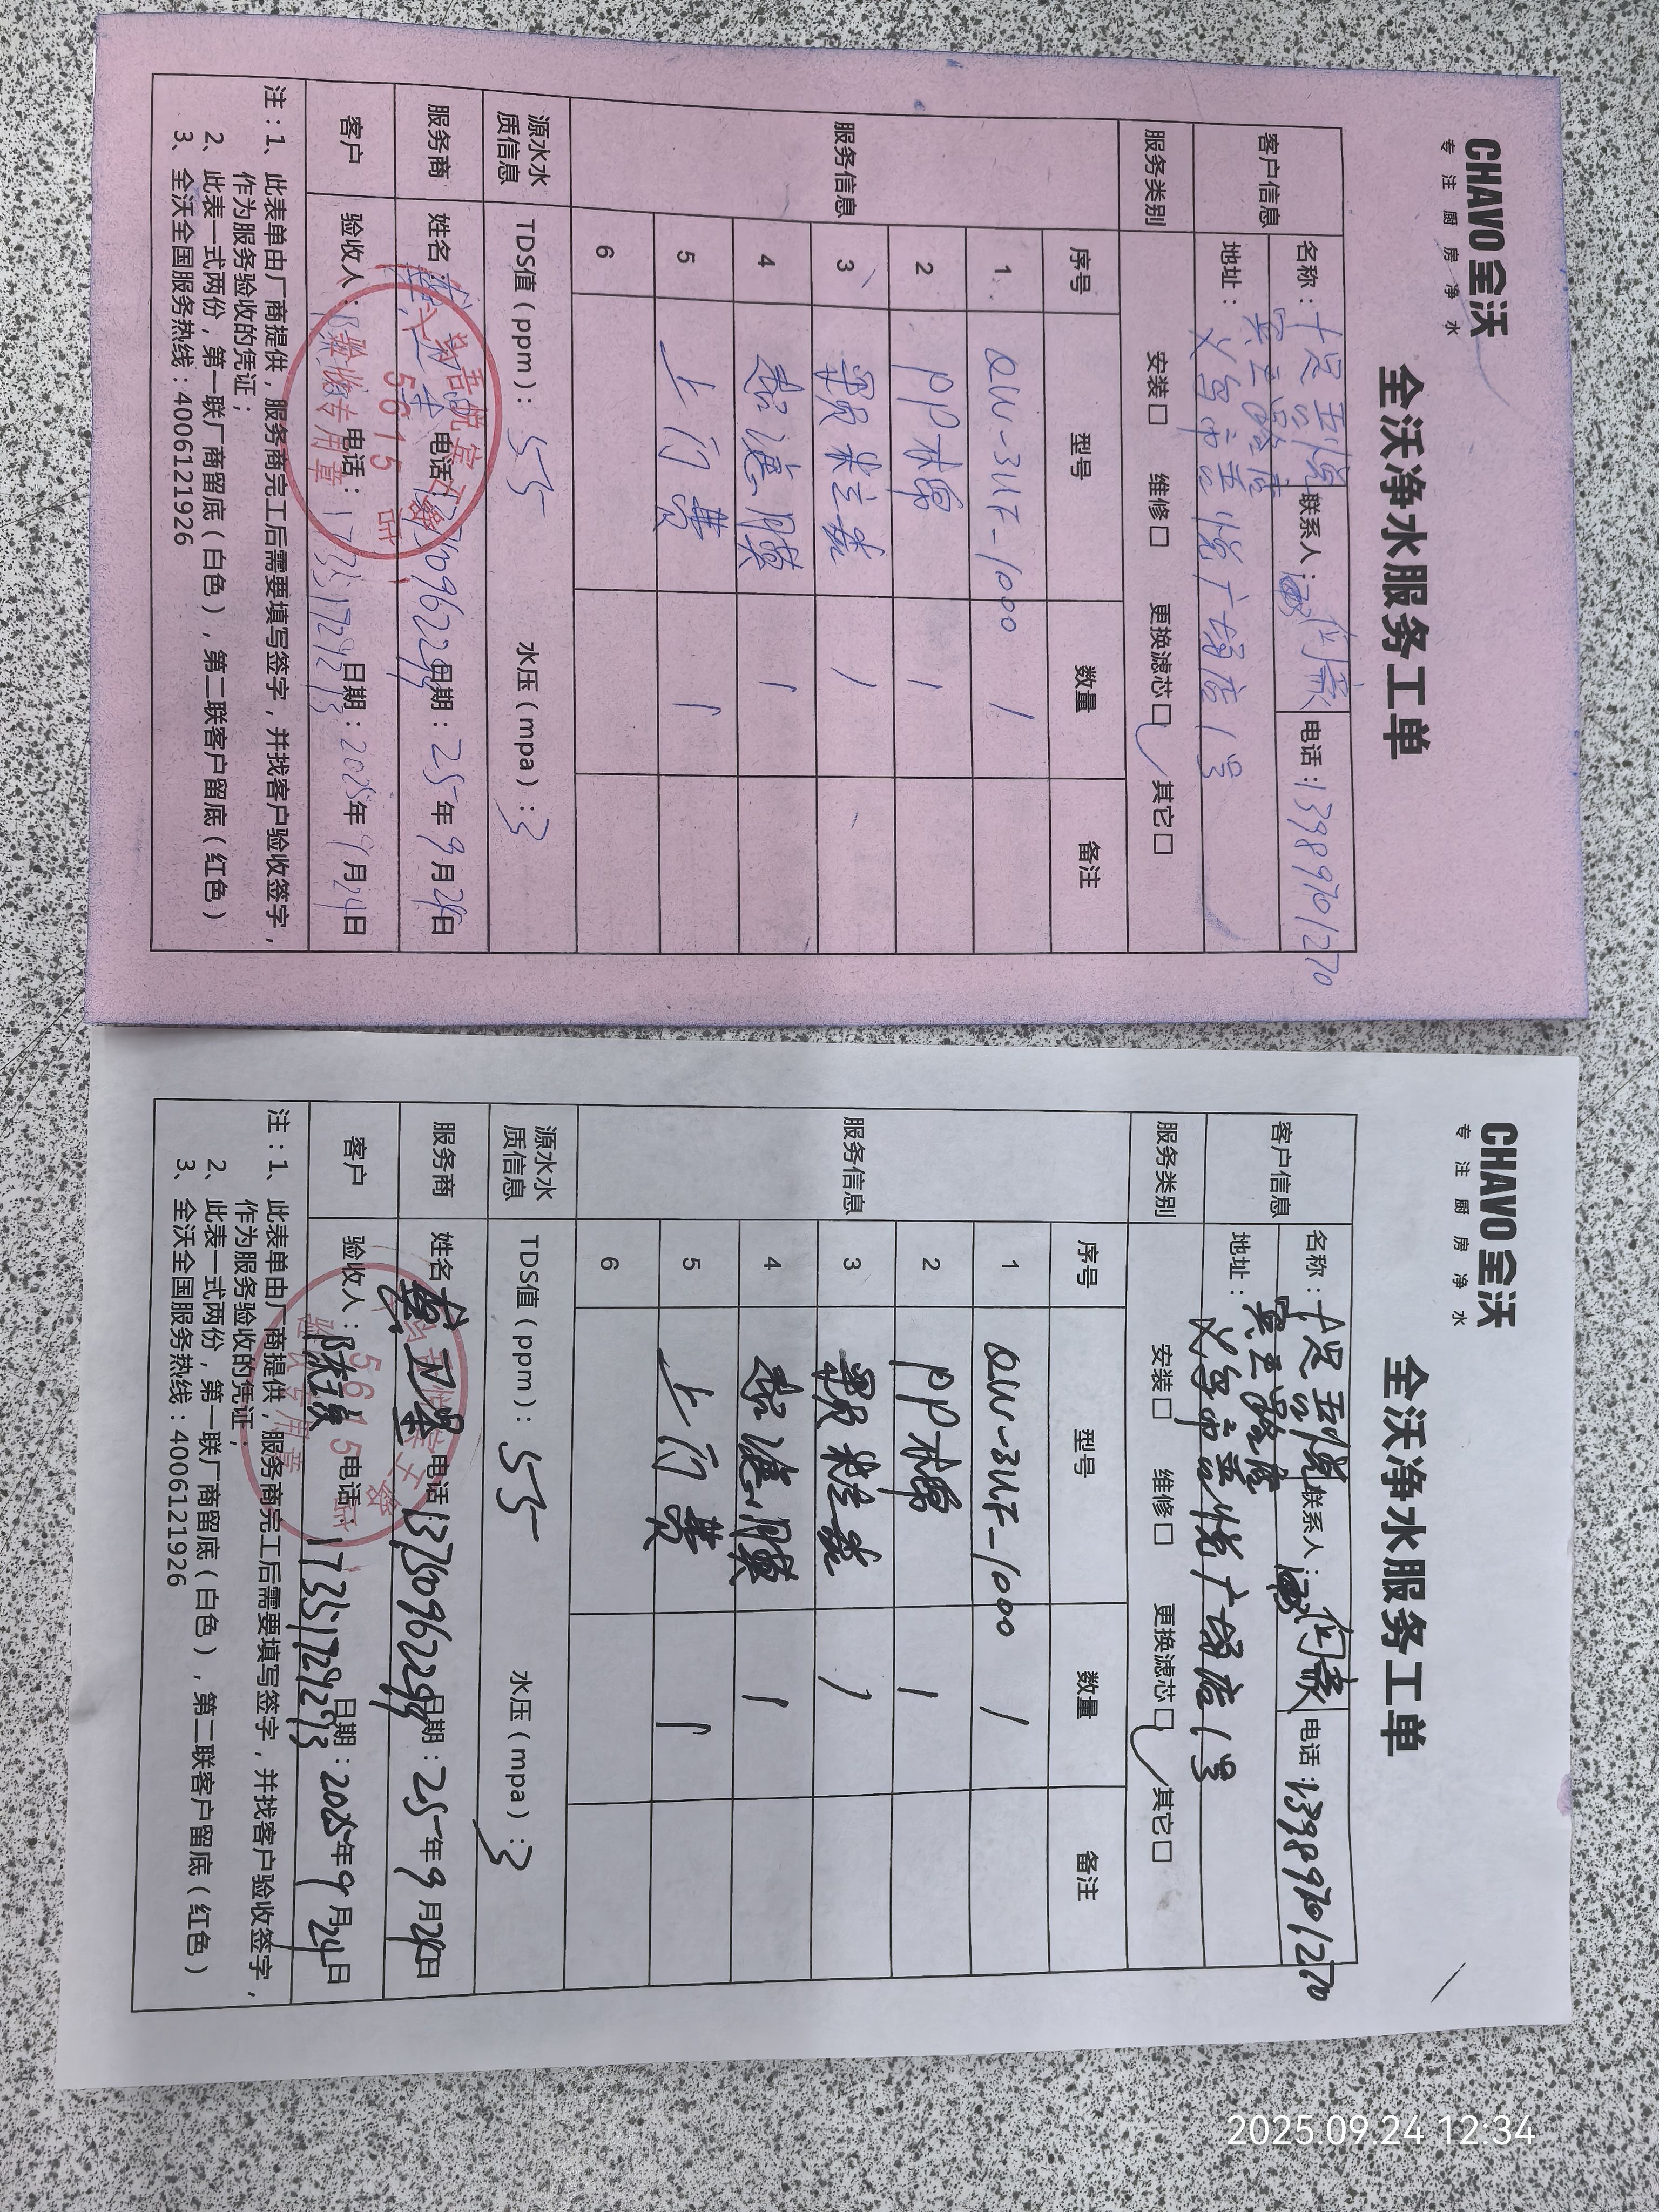 CHAVO 全沃
专注厨房净水
全沃净水服务工单
客户信息 名称： 联系人： 电话：13989701270
地址：义乌市 悦广场店1号
服务类别 安装□ 维修□ 更换滤芯□ 其它□
服务信息 序号 型号 数量 备注
1 QW-3UF-1000 1
2 PP棉 1
3 颗粒炭 1
4 超滤膜 1
5 上门费 1
6
源水水质信息 TDS值（ppm）：55 水压（mpa）：3
服务商 姓名： 电话 日期：25年9月24日
客户 验收人： 电话：17351729273 日期：2025年9月24日
5615
验收专用章
注：1、此表单由厂商提供，服务商完工后需要填写签字，并找客户验收签字，
作为服务验收的凭证；
2、此表一式两份，第一联厂商留底（白色），第二联客户留底（红色）
3、全沃全国服务热线：4006121926
CHAVO 全沃
专注厨房净水
全沃净水服务工单
客户信息 名称： 联系人： 电话：13989701270
地址：义乌市 悦广场店1号
服务类别 安装□ 维修□ 更换滤芯□ 其它□
服务信息 序号 型号 数量 备注
1 QW-3UF-1000 1
2 PP棉 1
3 颗粒炭 1
4 超滤膜 1
5 上门费 1
6
源水水质信息 TDS值（ppm）：55 水压（mpa）：3
服务商 姓名 电话 日期：25年9月24日
客户 验收人： 电话：17351729273 日期：2025年9月24日
5615
注：1、此表单由厂商提供，服务商完工后需要填写签字，并找客户验收签字，
作为服务验收的凭证；
2、此表一式两份，第一联厂商留底（白色），第二联客户留底（红色）
3、全沃全国服务热线：4006121926
2025.09.24 12:34